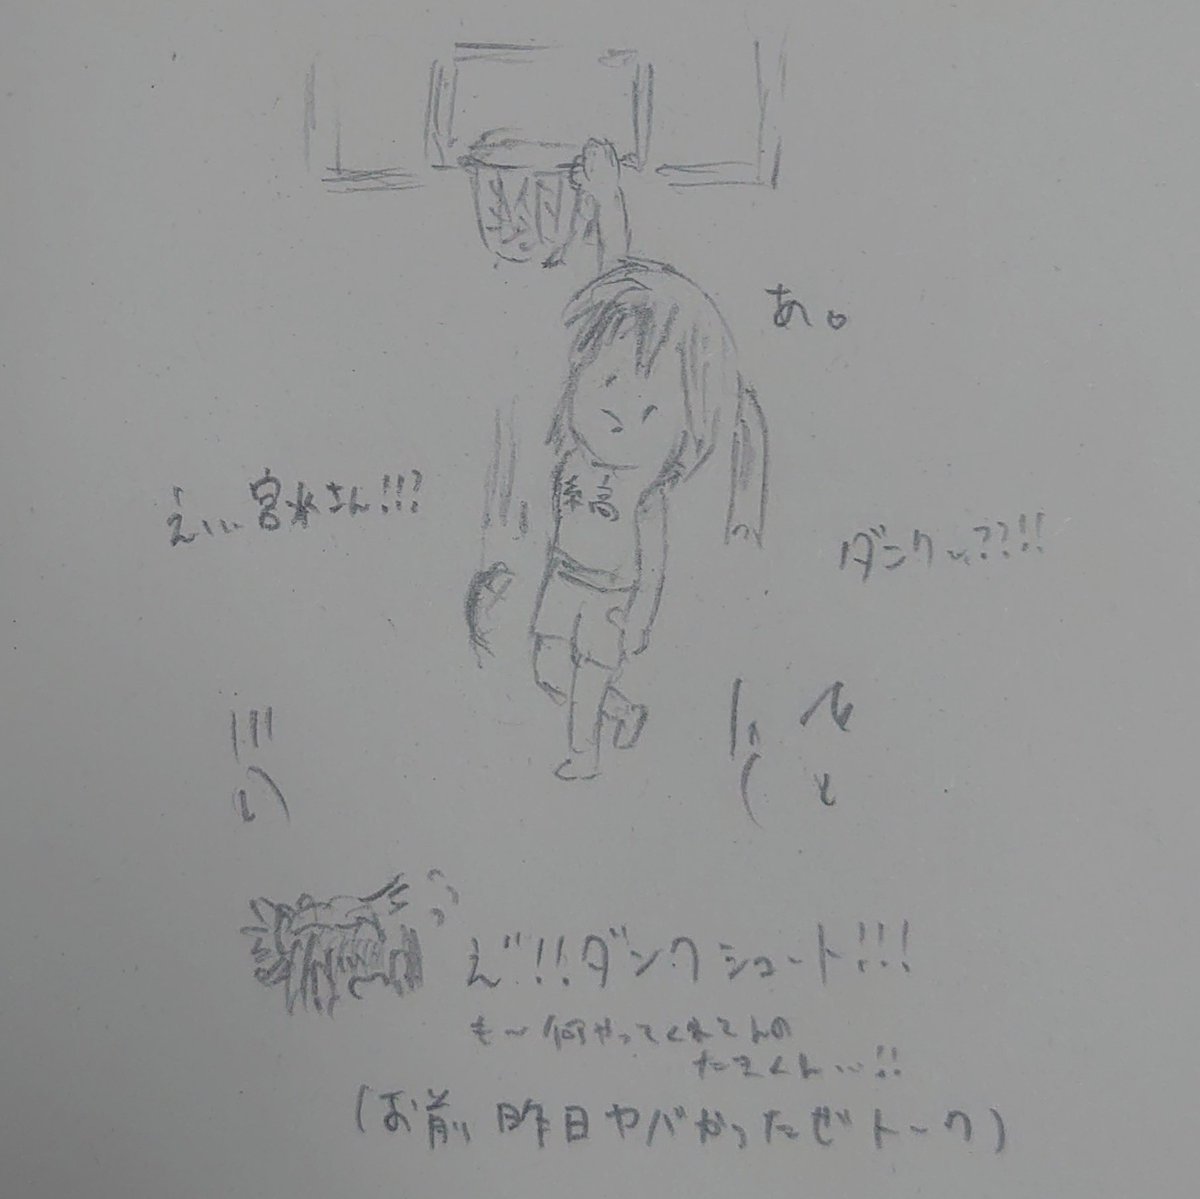 あ。
えぃぃ宮水さん!!!?
ダンクぃ??!!
え゛!!ダンクシュート!!!
も〜何やってくれてんの
たきくん…!!
(お前、昨日ヤバかったぜトーク)